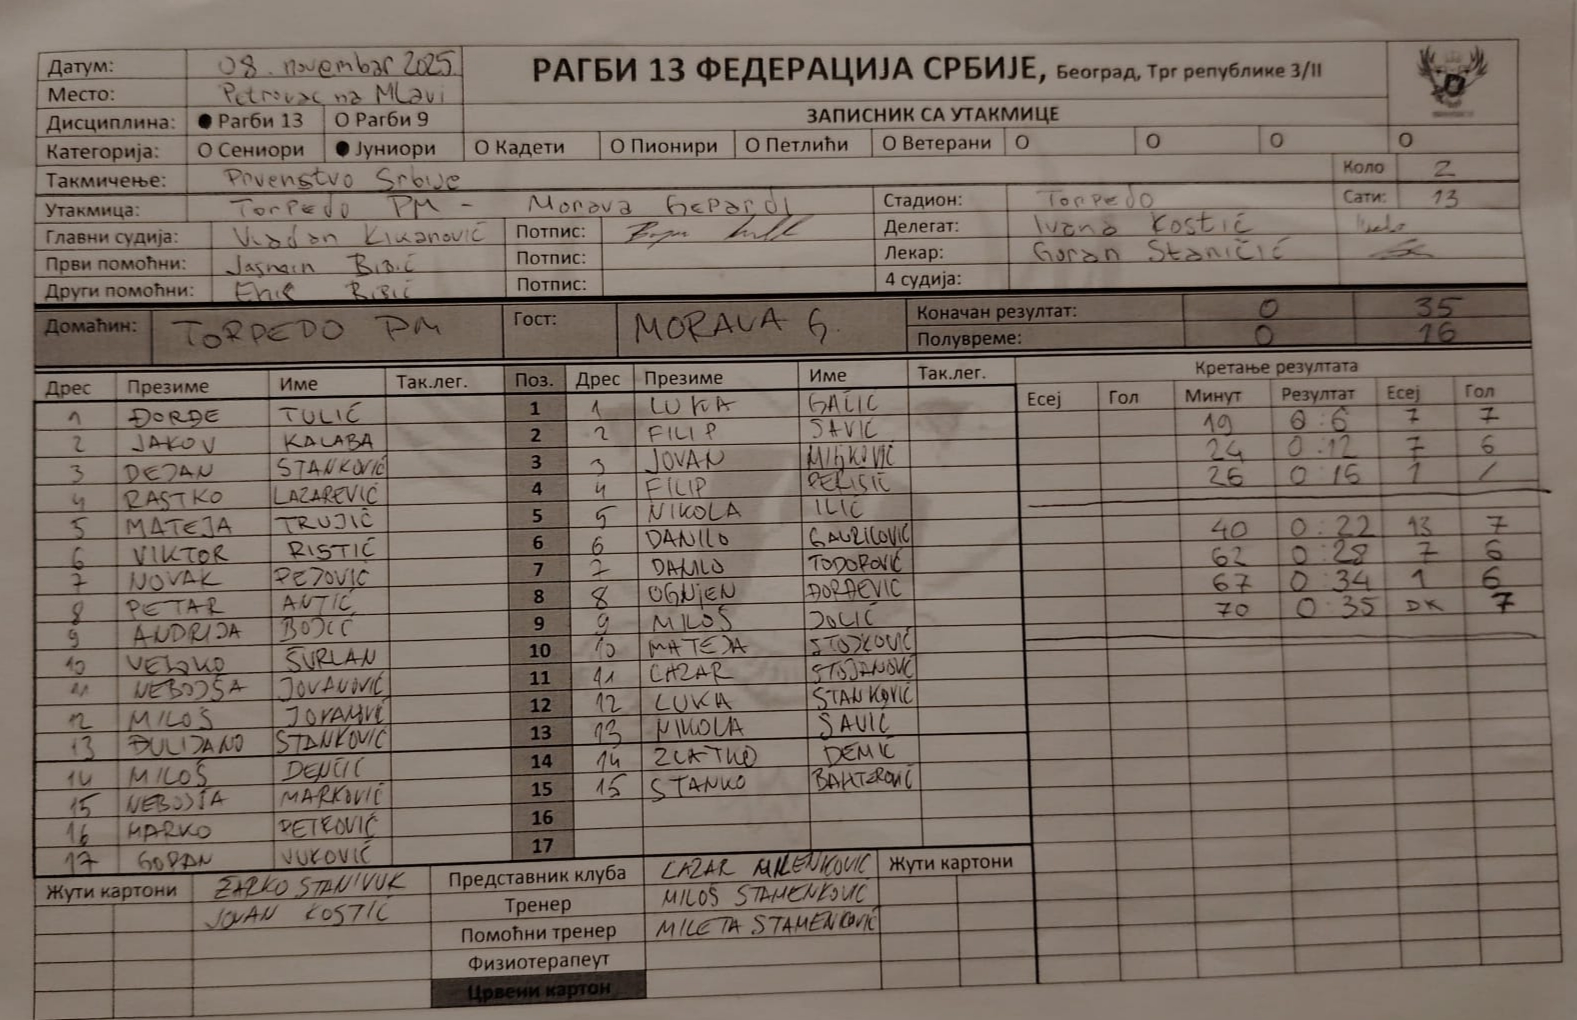 Датум: 08. novembar 2025. РАГБИ 13 ФЕДЕРАЦИЈА СРБИЈЕ, Београд, Трг републике 3/II
Место: Petrovac na Mlavi
Дисциплина: Рагби 13 О Рагби 9 ЗАПИСНИК СА УТАКМИЦЕ
Категорија: О Сениори Јуниори О Кадети О Пионири О Петлићи О Ветерани О О О О
Такмичење: Prvenstvo Srbije Коло 2
Утакмица: Torpedo PM - Morava Gepardi Стадион: Torpedo Сати: 13
Главни судија: Vladan Kikanović Потпис: Делегат: Ivana Kostić
Први помоћни: Jasmin Bibić Потпис: Лекар: Goran Staničić
Други помоћни: Enis Bibić Потпис: 4 судија:
Домаћин: TORPEDO PM Гост: MORAVA G. Коначан резултат: 0 35
Полувреме: 0 16
Кретање резултата
Дрес Презиме Име Так.лег. Поз. Дрес Презиме Име Так.лег. Есеј Гол Минут Резултат Есеј Гол
1 ĐORĐE TULIĆ 1 1 LUKA GAĆIĆ 19 0:6 7 7
2 JAKOV KALABA 2 2 FILIP SAVIĆ 24 0:12 7 6
3 DEJAN STANKOVIĆ 3 3 JOVAN 26 0:16 1 /
4 RASTKO LAZAREVIĆ 4 4 FILIP PERIŠIĆ
5 MATEJA TRUJIĆ 5 5 NIKOLA ILIĆ 40 0:22 13 7
6 VIKTOR RISTIĆ 6 6 DANILO GAVRILOVIĆ 62 0:28 7 6
7 NOVAK PEJOVIĆ 7 7 DANILO TODOROVIĆ 67 0:34 1 6
8 PETAR ANTIĆ 8 8 OGNJEN ĐORĐEVIĆ 70 0:35 DK 7
9 ANDRIJA BOJIĆ 9 9 MILOŠ JOLIĆ
10 VELJKO ŠURLAN 10 10 MATEJA STOJKOVIĆ
11 NEBOJŠA JOVANOVIĆ 11 11 LAZAR STOJANOVIĆ
12 MILOŠ 12 12 LUKA STANKOVIĆ
13 ĐULIJANO STANKOVIĆ 13 13 NIKOLA SAVIĆ
14 MILOŠ DENČIĆ 14 14 ZLATKO DEMIĆ
15 NEBOJŠA MARKOVIĆ 15 15 STANKO
16 MARKO PETROVIĆ 16
17 GORAN VUKOVIĆ 17
Жути картони ŽARKO STANIVUK Представник клуба LAZAR MILENKOVIĆ Жути картони
JOVAN KOSTIĆ Тренер MILOŠ STAMENKOVIĆ
Помоћни тренер MILETA STAMENKOVIĆ
Физиотерапеут
Црвени картон